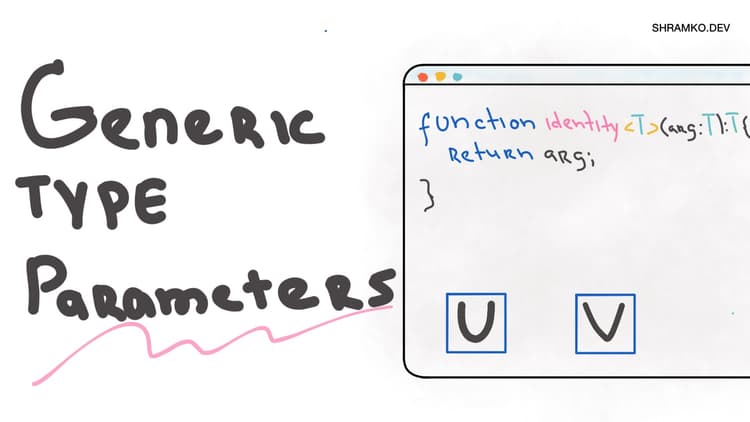 SHRAMKO.DEV
Generic
Type
Parameters
function identity<T>(arg:T):T{
return arg;
}
U V